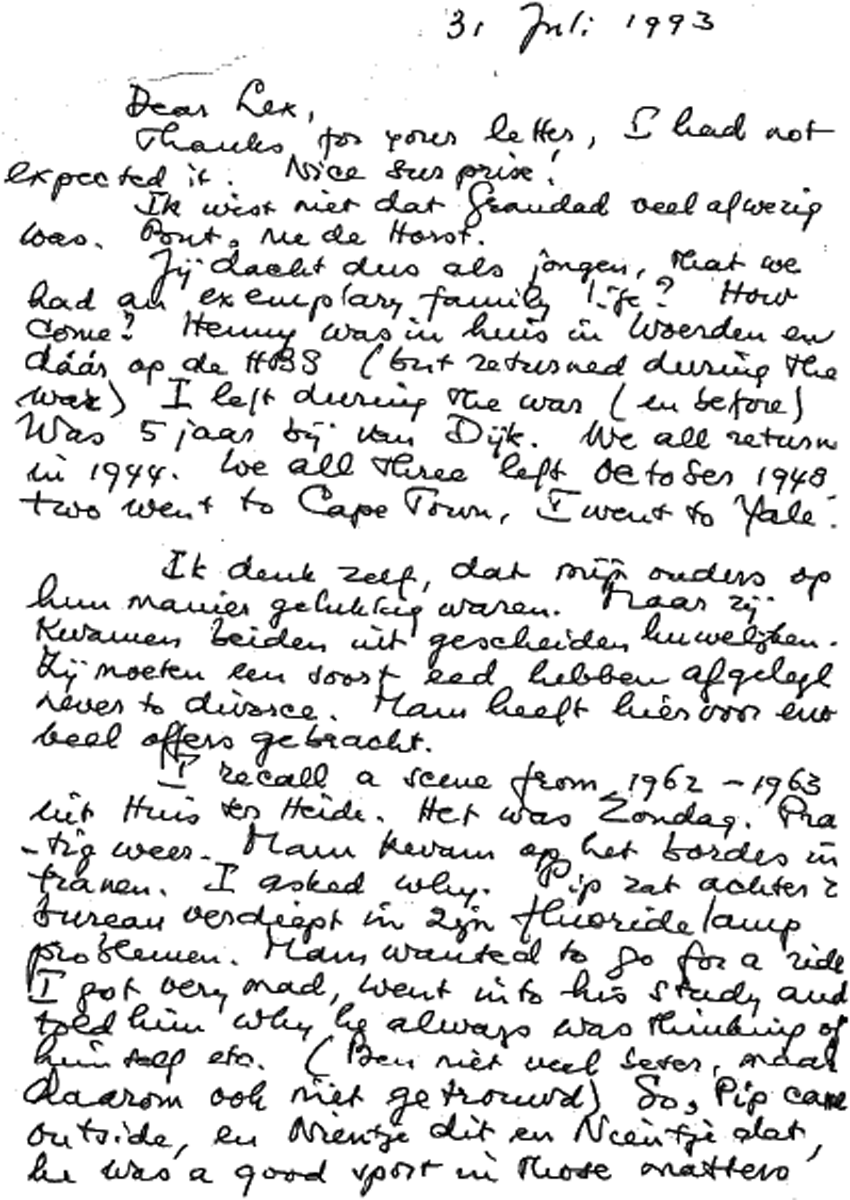 31 Juli 1993
Dear Lex,
Thanks for your letter, I had not
expected it. Nice surprise!
Ik wist niet dat Grandad veel afwezig
was. Bout, v.d. Horst.
Jij dacht dus als jongen, that we
had an exemplary family life? How
come? Henny was in huis in Woerden en
dáár op de HBS (but returned during the
war) I left during the war (en before)
Was 5 jaar bij van Dijk. We all return
in 1944. We all three left October 1948
two went to Cape Town, I went to Yale.
Ik denk zelf, dat mijn ouders op
hun manier gelukkig waren. Maar zij
kwamen beiden uit gescheiden huwelijken.
Zij moeten een soort eed hebben afgelegd
never to divorce. Mam heeft hiervoor
veel offers gebracht.
I recall a scene from 1962 - 1963
uit Huis ter Heide. Het was Zondag. Pra
-tig weer. Mam kwam op het bordes in
tranen. I asked why. Pip zat achter z
bureau verdiept in zijn fluoride lamp
problemen. Mam wanted to go for a ride
I got very mad, went into his study and
told him why he always was thinking of
himself etc. (Ben niet veel beter, maar
daarom ook niet getrouwd) So, Pip came
outside, en Nientje dit en Nientje dat,
he was a good sport in those matters